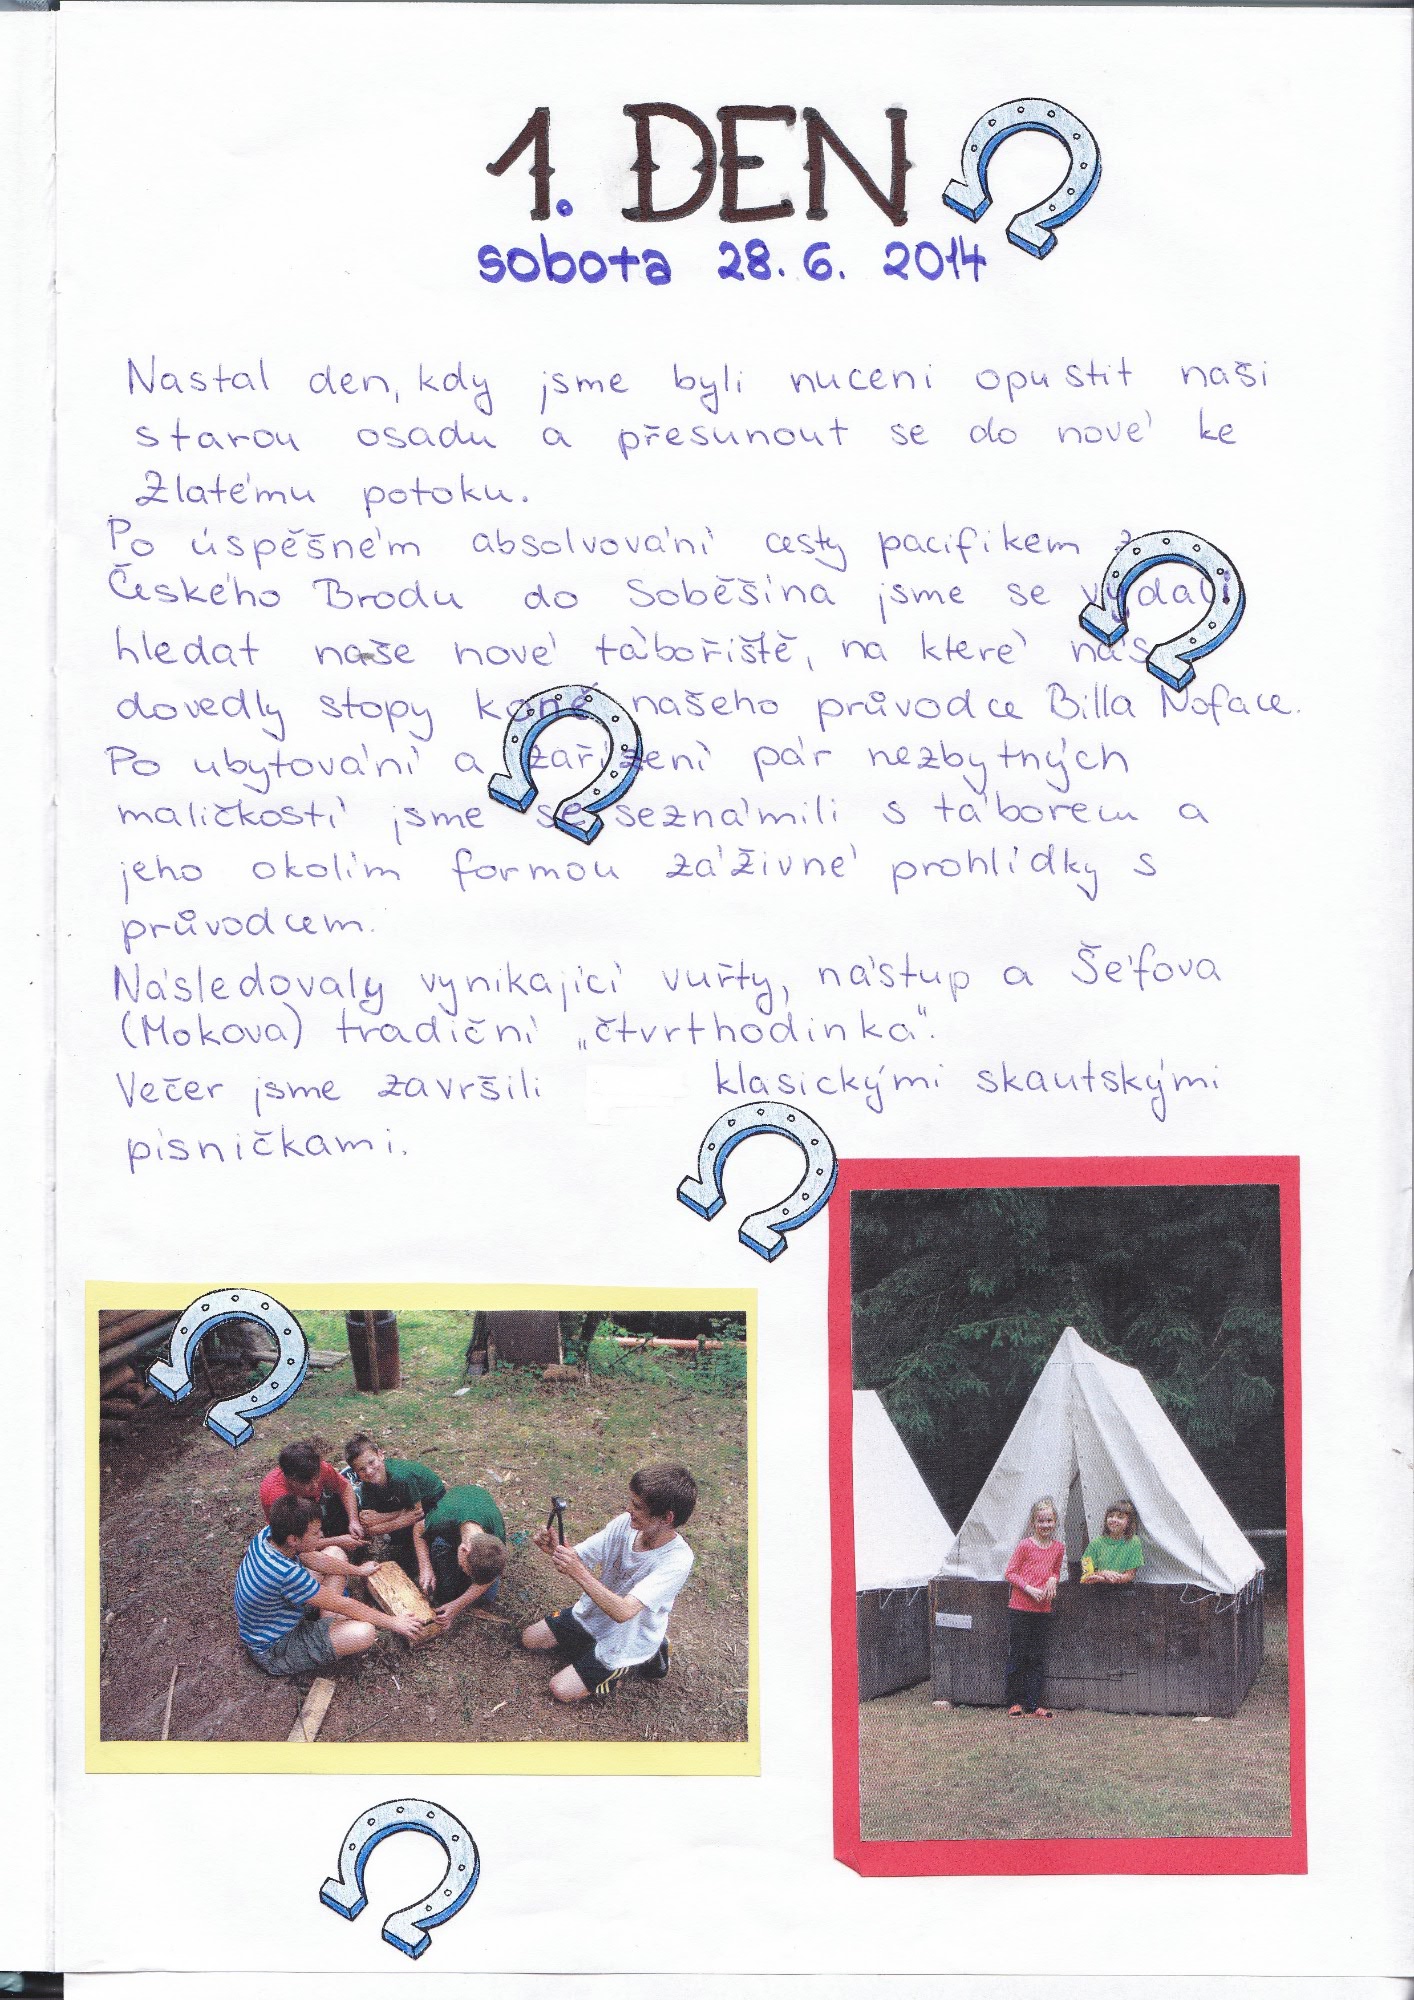 1. DEN
sobota 28. 6. 2014
Nastal den, kdy jsme byli nuceni opustit naši
starou osadu a přesunout se do nové ke
Zlatému potoku.
Po úspěšném absolvování cesty pacifikem z
Českého Brodu do Soběšína jsme se vydali
hledat naše nové tábořiště, na které nás
dovedly stopy koně našeho průvodce Billa Noface.
Po ubytování a zařízení pár nezbytných
maličkostí jsme se seznámili s táborem a
jeho okolím formou záživné prohlídky s
průvodcem.
Následovaly vynikající vuřty, nástup a Šéfova
(Mokova) tradiční „čtvrthodinka“.
Večer jsme završili klasickými skautskými
písničkami.